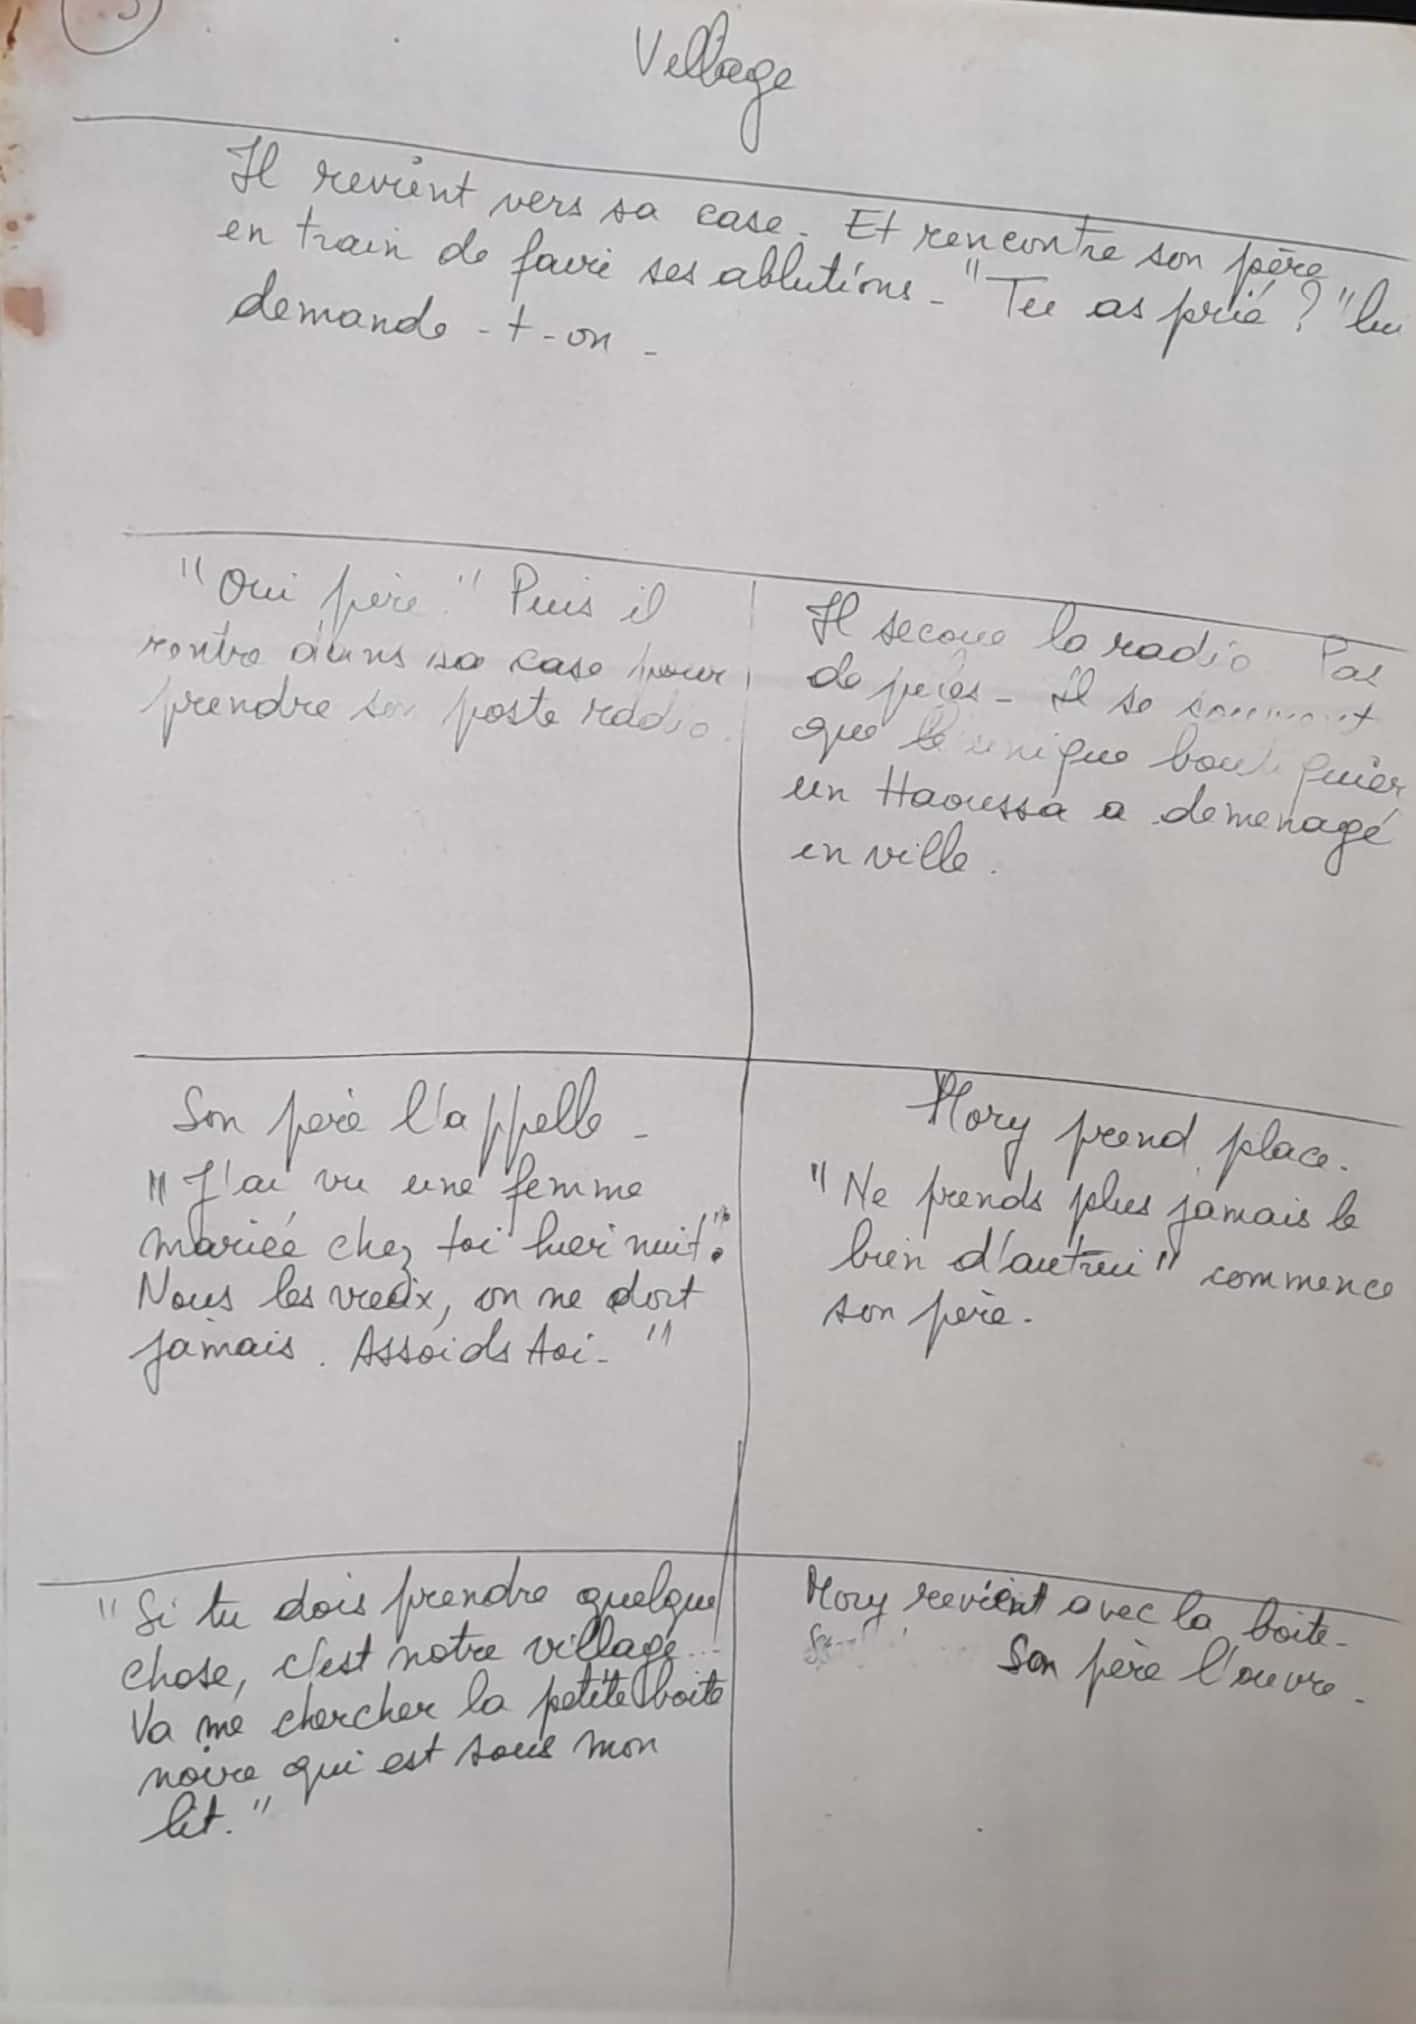 3
Village
Il revient vers sa case. Et rencontre son père
en train de faire ses ablutions - "Tu as prié ? " lui
demande - t - on -
"Oui père." Puis il
rentre dans sa case pour
prendre son poste radio.
Il secoue la radio. Pas
de piles - Il se souvient
que l'unique boutiquier
un Haoussa a demenagé
en ville.
Son père l'appelle -
"J'ai vu une femme
mariée chez toi hier nuit".
Nous les vieux, on ne dort
jamais. Assoids toi - "
Mory prend place.
"Ne prends plus jamais le
bien d'autrui" commence
son père.
"Si tu dois prendre quelque
chose, c'est notre village...
Va me chercher la petite boite
noire qui est sous mon
lit."
Mory revient avec la boite -
Son père l'ouvre -